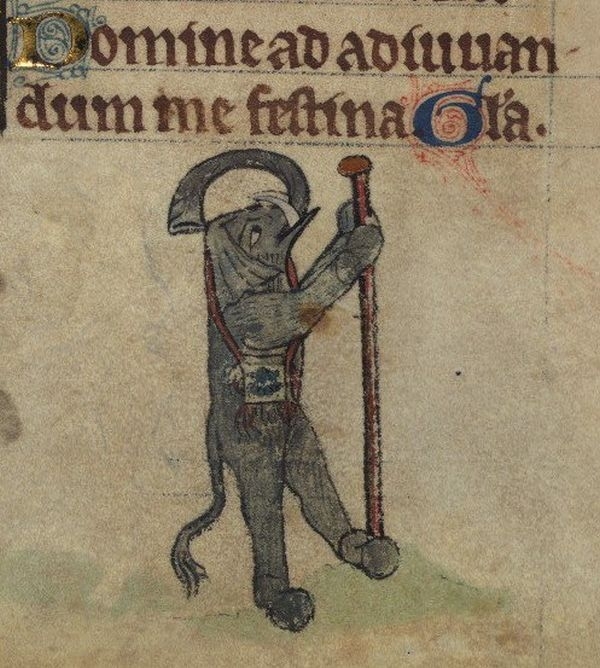 Domine ad adiuuan
dum me festina Gl'a.